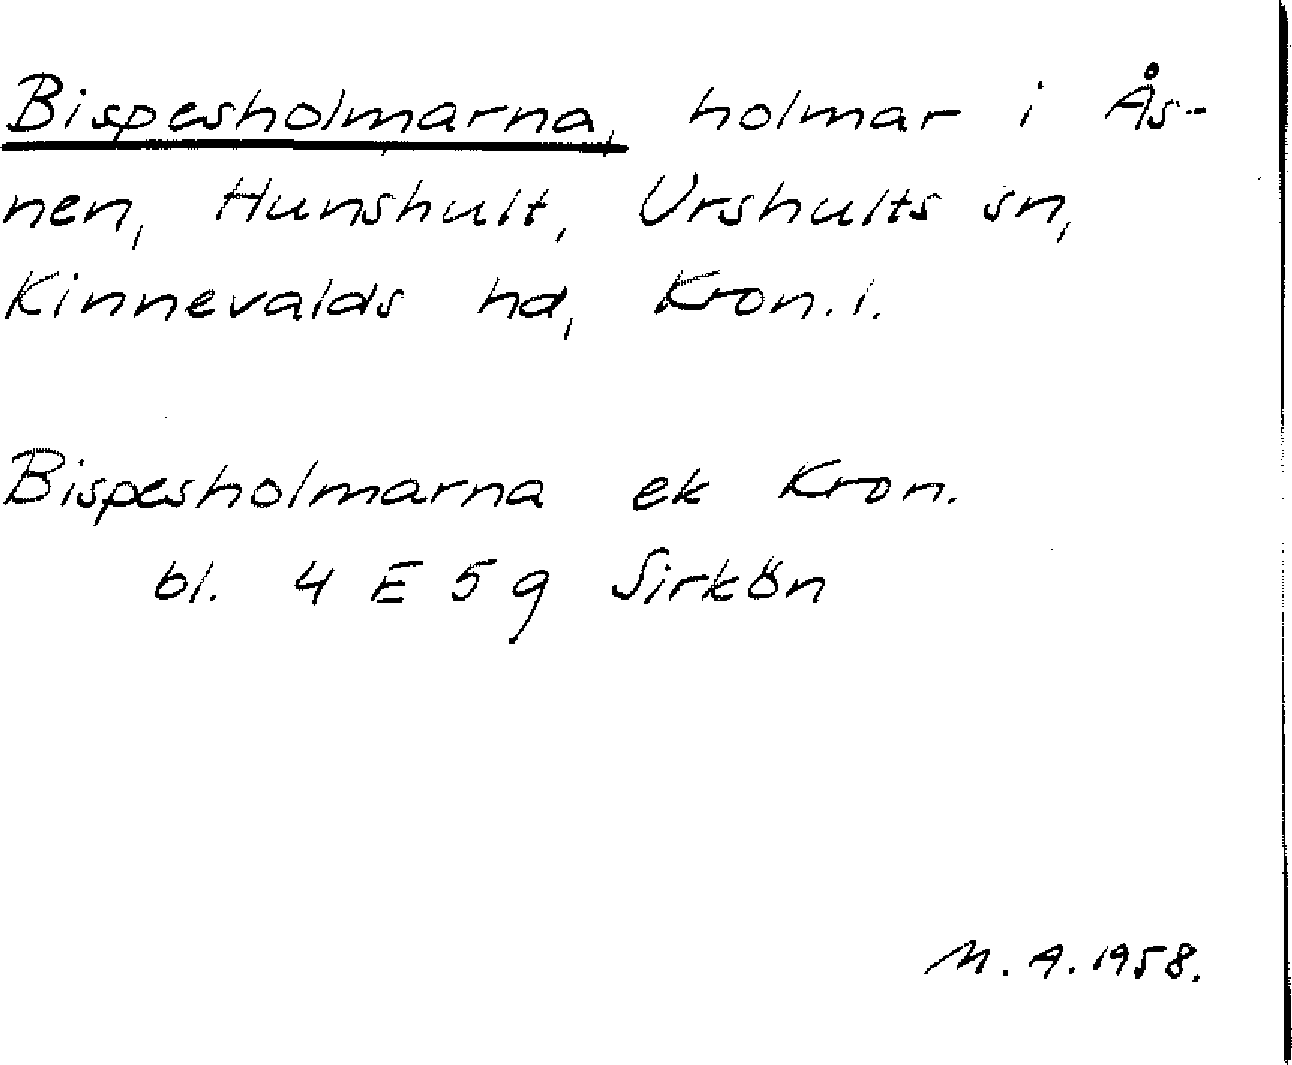 Bispesholmarna, holmar i Ås-
nen, Hunshult, Urshults sn,
Kinnevalds hd, Kron. l.
Bispesholmarna ek Kron.
bl. 4 E 5 g Sirkön
M. A. 1958.